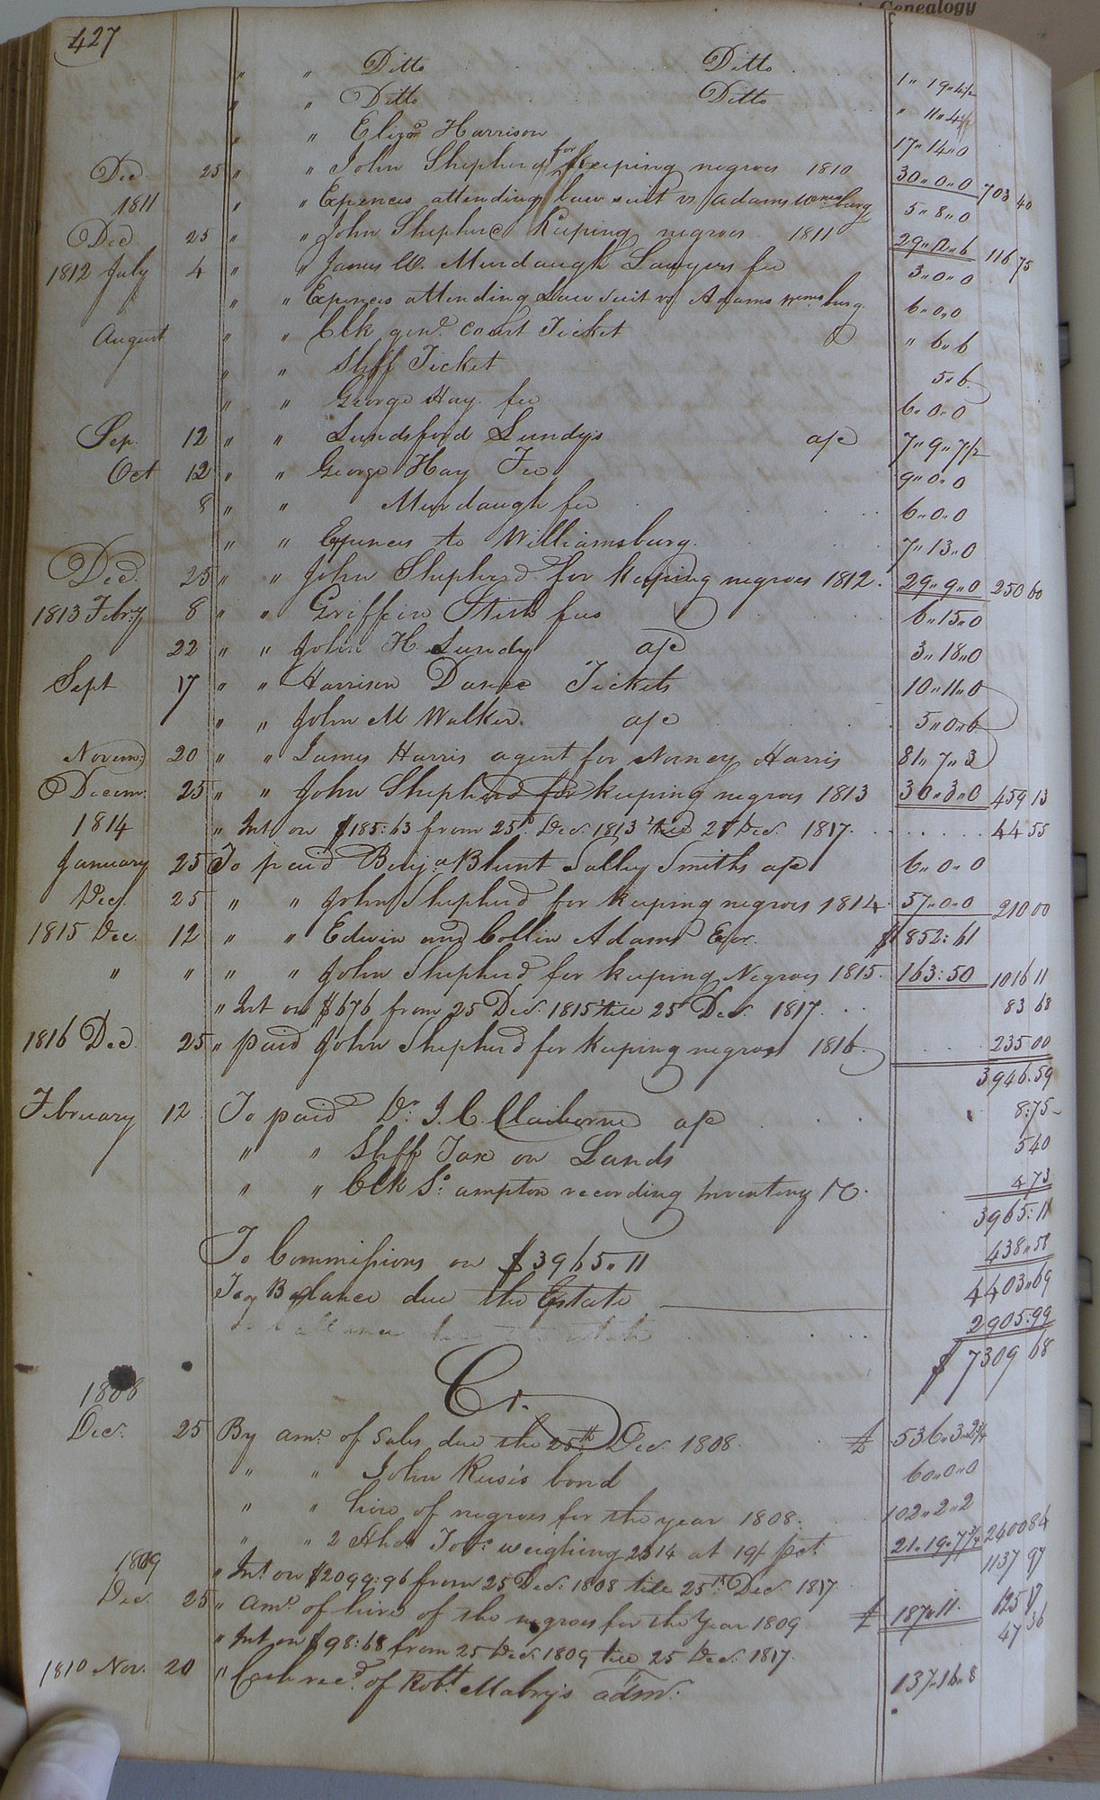 Genealogy
427
" " Ditto Ditto 1" 19" 4½
" " Ditto Ditto " 11" 4½
" " Eliza Harrison 17" 14" 0
Dec 25 " " John Shepherd for keeping negroes 1810 30" 0" 0 703 40
1811 " " Expences attending law suit vs Adams Wmsburg 5" 8" 0
Dec 25 " " John Shepherd Keeping negroes 1811 29" 12" 6 116 75
1812 July 4 " " James W. Murdaugh Lawyers fee 3" 0" 0
" " Expences attending Law suit vs Adams Wmsburg 6" 0" 0
August " " Clk genl. Court Ticket " 6" 6
" " Shff Ticket 5" 6
" " George Hay fee 6" 0" 0
Sep. 12 " " Lundsford Lundy's a/c 7" 9" 7½
Oct 12 " " George Hay Fee 9" 0" 0
8 " " Murdaugh fee 6" 0" 0
" " Expences to Williamsburg. 7" 13" 0
Dec. 25 " " John Shepherd for keeping negroes 1812. 29" 9" 0 250 60
1813 Febry 8 " " Griffin Stith fees 6" 15" 0
22 " " John H. Lundy a/c 3" 18" 0
Sept 17 " " Harrison Dance Tickets 10" 11" 0
" " John M Walker. a/c 5" 0" 6
Novem: 20 " " James Harris agent for Nancy Harris 81" 7" 3
Decem. 25 " " John Shepherd for keeping negroes 1813 30" 3" 0 459 13
1814 " Int on $185:63 from 25th Decr 1813 till 25 Decr. 1817. 44 55
January 25 To paid Benja. Blunt Salley Smiths a/c 6" 0" 0
Dec. 25 " " John Shepherd for keeping negroes 1814 57" 0" 0 210 00
1815 Dec. 12 " " Edwin and Collin Adams Exr. $ 852:61
" " " " John Shepherd for keeping Negroes 1815. 163:50 1016 11
" Int on $676 from 25 Decr. 1815 till 25 Decr. 1817. 83 68
1816 Dec. 25 " paid John Shepherd for keeping negroes 1816. 235 00
3946.59
February 12 To paid Dr. J. C. Claiborne a/c 8:75
" " Shff Tax on Lands 5 40
" " Clk So: ampton recording Inventory &c. 4 73
3965:11
To Commissions on $3965"11 438"58
4403"69
To Balance due the Estate 2905:99
$ 7309 68
Cr.
1808
Dec. 25 By amt. of Sales due the 25th Dec 1808. £ 536" 3" 2¼
" " John Rusis bond 60" 0" 0
" " hire of negroes for the year 1808. 102" 2" 2
" " 2 Hhds Tobo. weighing 2314 at 19/ pct. 21" 19" 7¾ 2400 84
1809 " Int. on $2099:96 from 25 Dec. 1808 till 25th Dec. 1817 1137 97
Dec 25 " Amt. of hire of the negroes for the Year 1809 £ 187" 11. 625 17
" Int on $98:68 from 25 Dec. 1809 till 25 Dec. 1817. 47 36
1810 Nov. 20 " Cash recd. of Robt. Mabry's admr. 137" 16" 8